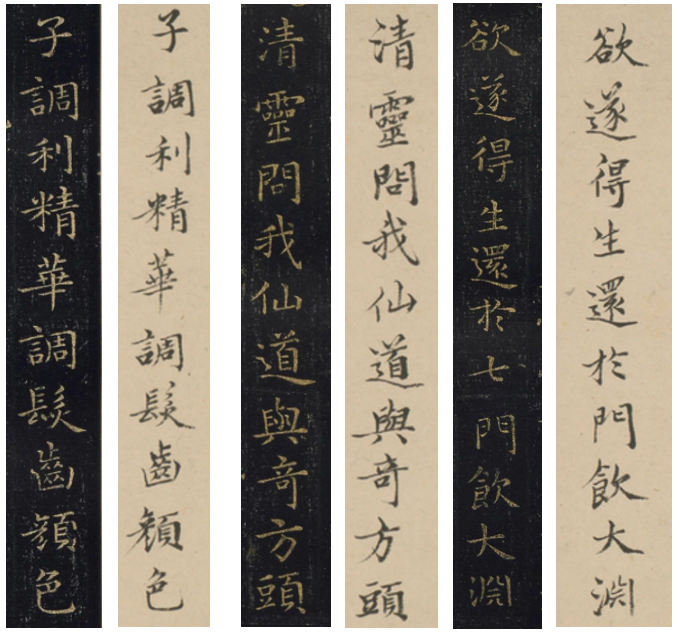 欲遂得生還於門飲大淵
欲遂得生還於七門飲大淵
清靈問我仙道與奇方頭
清靈問我仙道與奇方頭
子調利精華調髮齒顏色
子調利精華調髮齒顏色